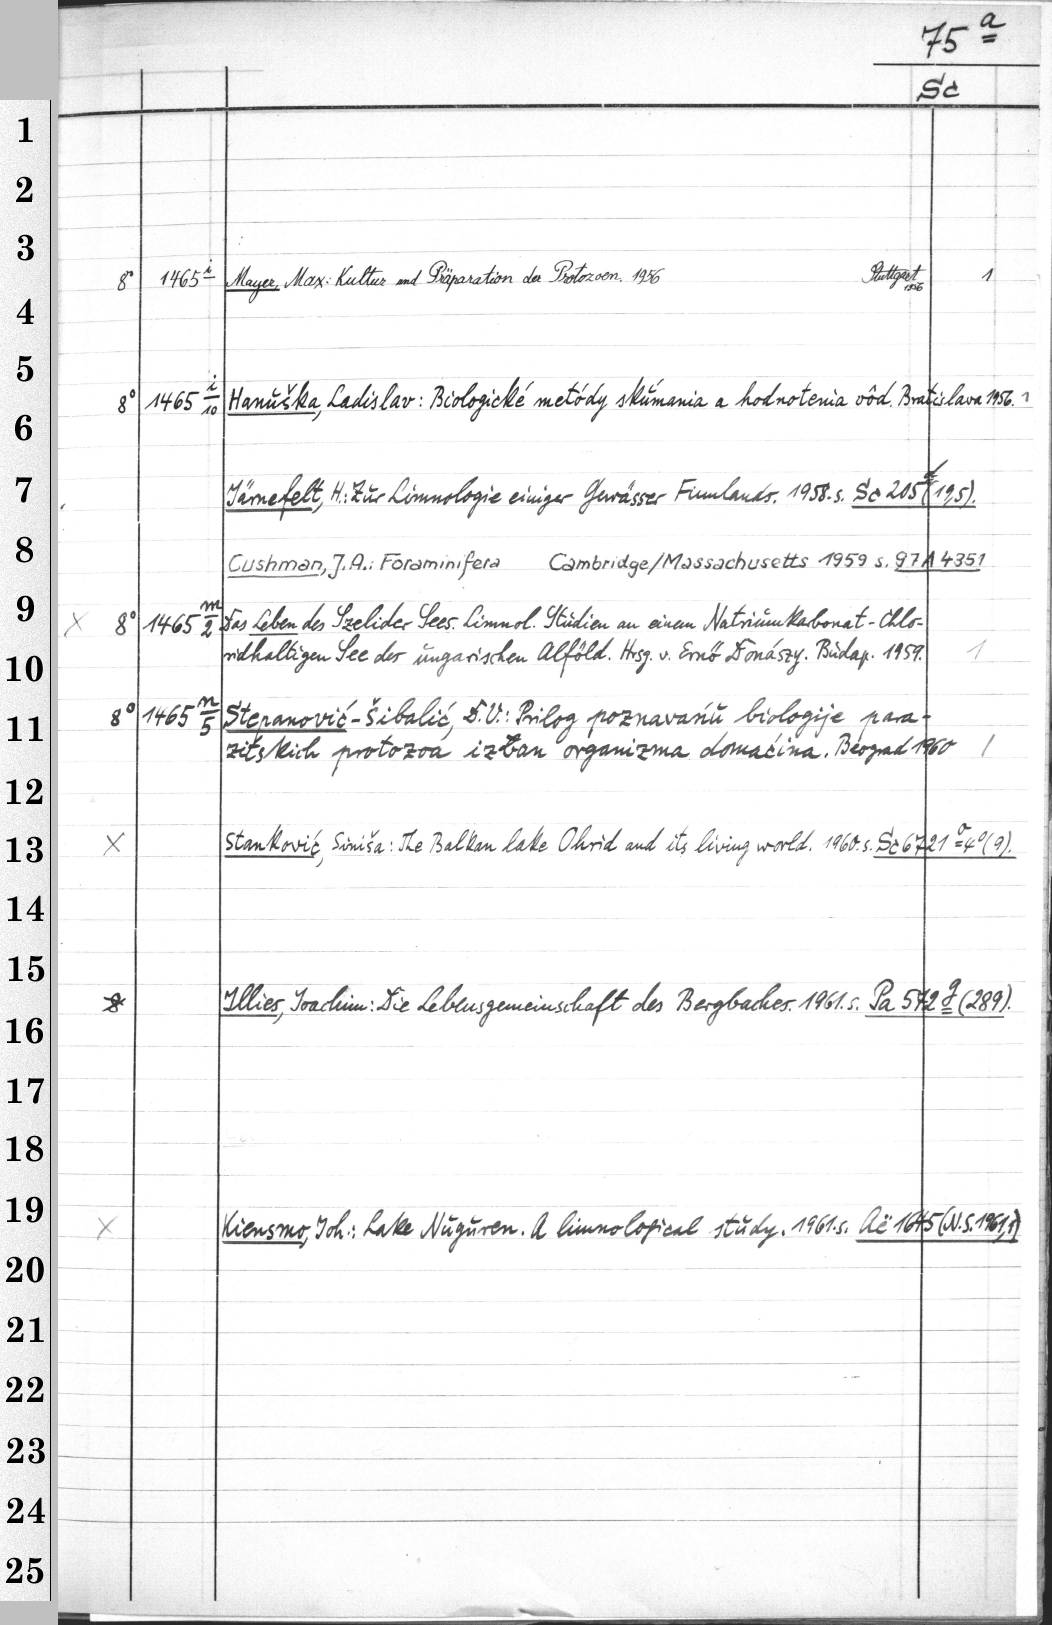 75 a
Sc
1
2
3
8° 1465 i Mayer, Max: Kultur und Präparation der Protozoen. 1956 Stuttgart 1956 1
4
5
8° 1465 i/10 Hanuška, Ladislav: Biologické metódy skúmania a hodnotenia vôd. Bratislava 1956. 1
6
7 Järnefelt, H.: Zur Limnologie einiger Gewässer Finnlands. 1958. s. Sc 205 (19,5).
8 Cushman, J.A.: Foraminifera Cambridge/Massachusetts 1959 s. 97 A 4351
9 X 8° 1465 m/2 Das Leben des Szelider Sees. Limnol. Studien an einem Natriumkarbonat-Chlo-
10 ridhaltigen See des ungarischen Alföld. Hrsg. v. Ernö Donászy. Budap. 1959. 1
11 8° 1465 n/5 Stepanović-Šibalić, D.V.: Prilog poznavańu biologije para-
zitskich protozoa izvan organizma domaćina. Beograd 1960 1
12
13 X Stanković, Siniša: The Balkan lake Ohrid and its living world. 1960. s. Sc 6721 a 4° (9).
14
15
8 Illies, Joachim: Die Lebensgemeinschaft des Bergbaches. 1961. s. Pa 572 g (289).
16
17
18
19 X Kiensmo, Joh.: Lake Nuguren. A limnological study. 1961. s. Aë 1645 (N.S. 1961,1)
20
21
22
23
24
25